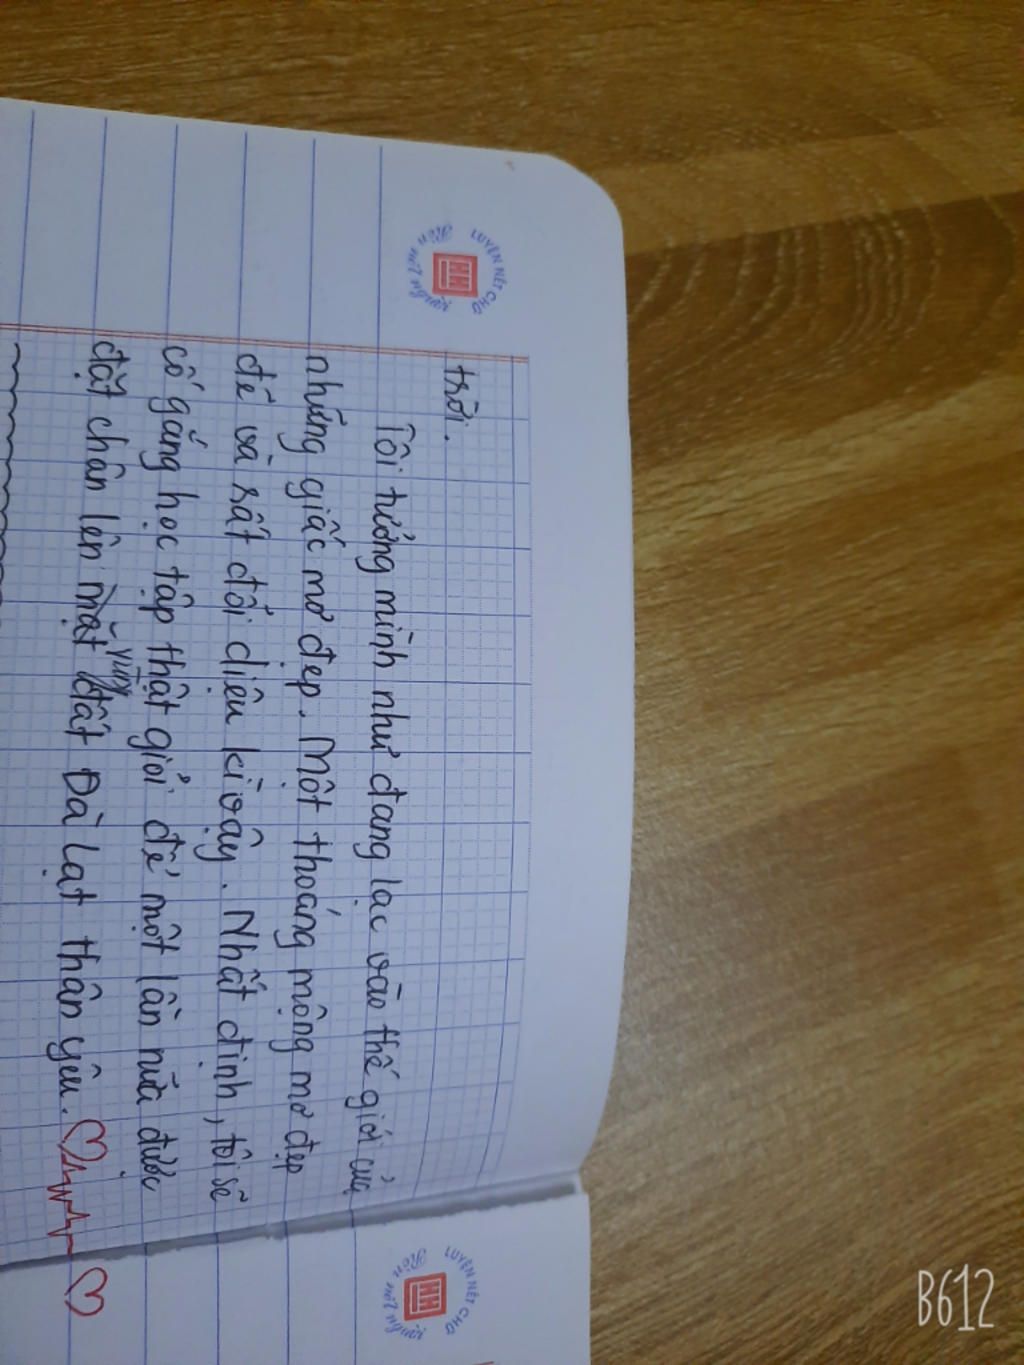 LUYỆN NÉT CHỮ
Rèn nết người
HH
trời.
Tôi tưởng mình như đang lạc vào thế giới của
những giấc mơ đẹp. Một thoáng mộng mơ đẹp
đẽ và rất đổi diệu kì vậy. Nhất định, tôi sẽ
cố gắng học tập thật giỏi để một lần nữa được
vùng
đặt chân lên mặt đất Đà Lạt thân yêu.
LUYỆN NÉT CHỮ
Rèn nết người
HH
B612